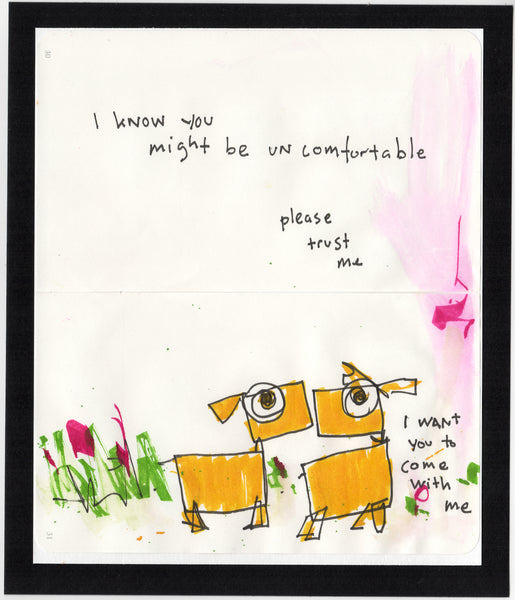 30
I know you
might be uncomfortable
please
trust
me
I want
you to
come
with
me
31